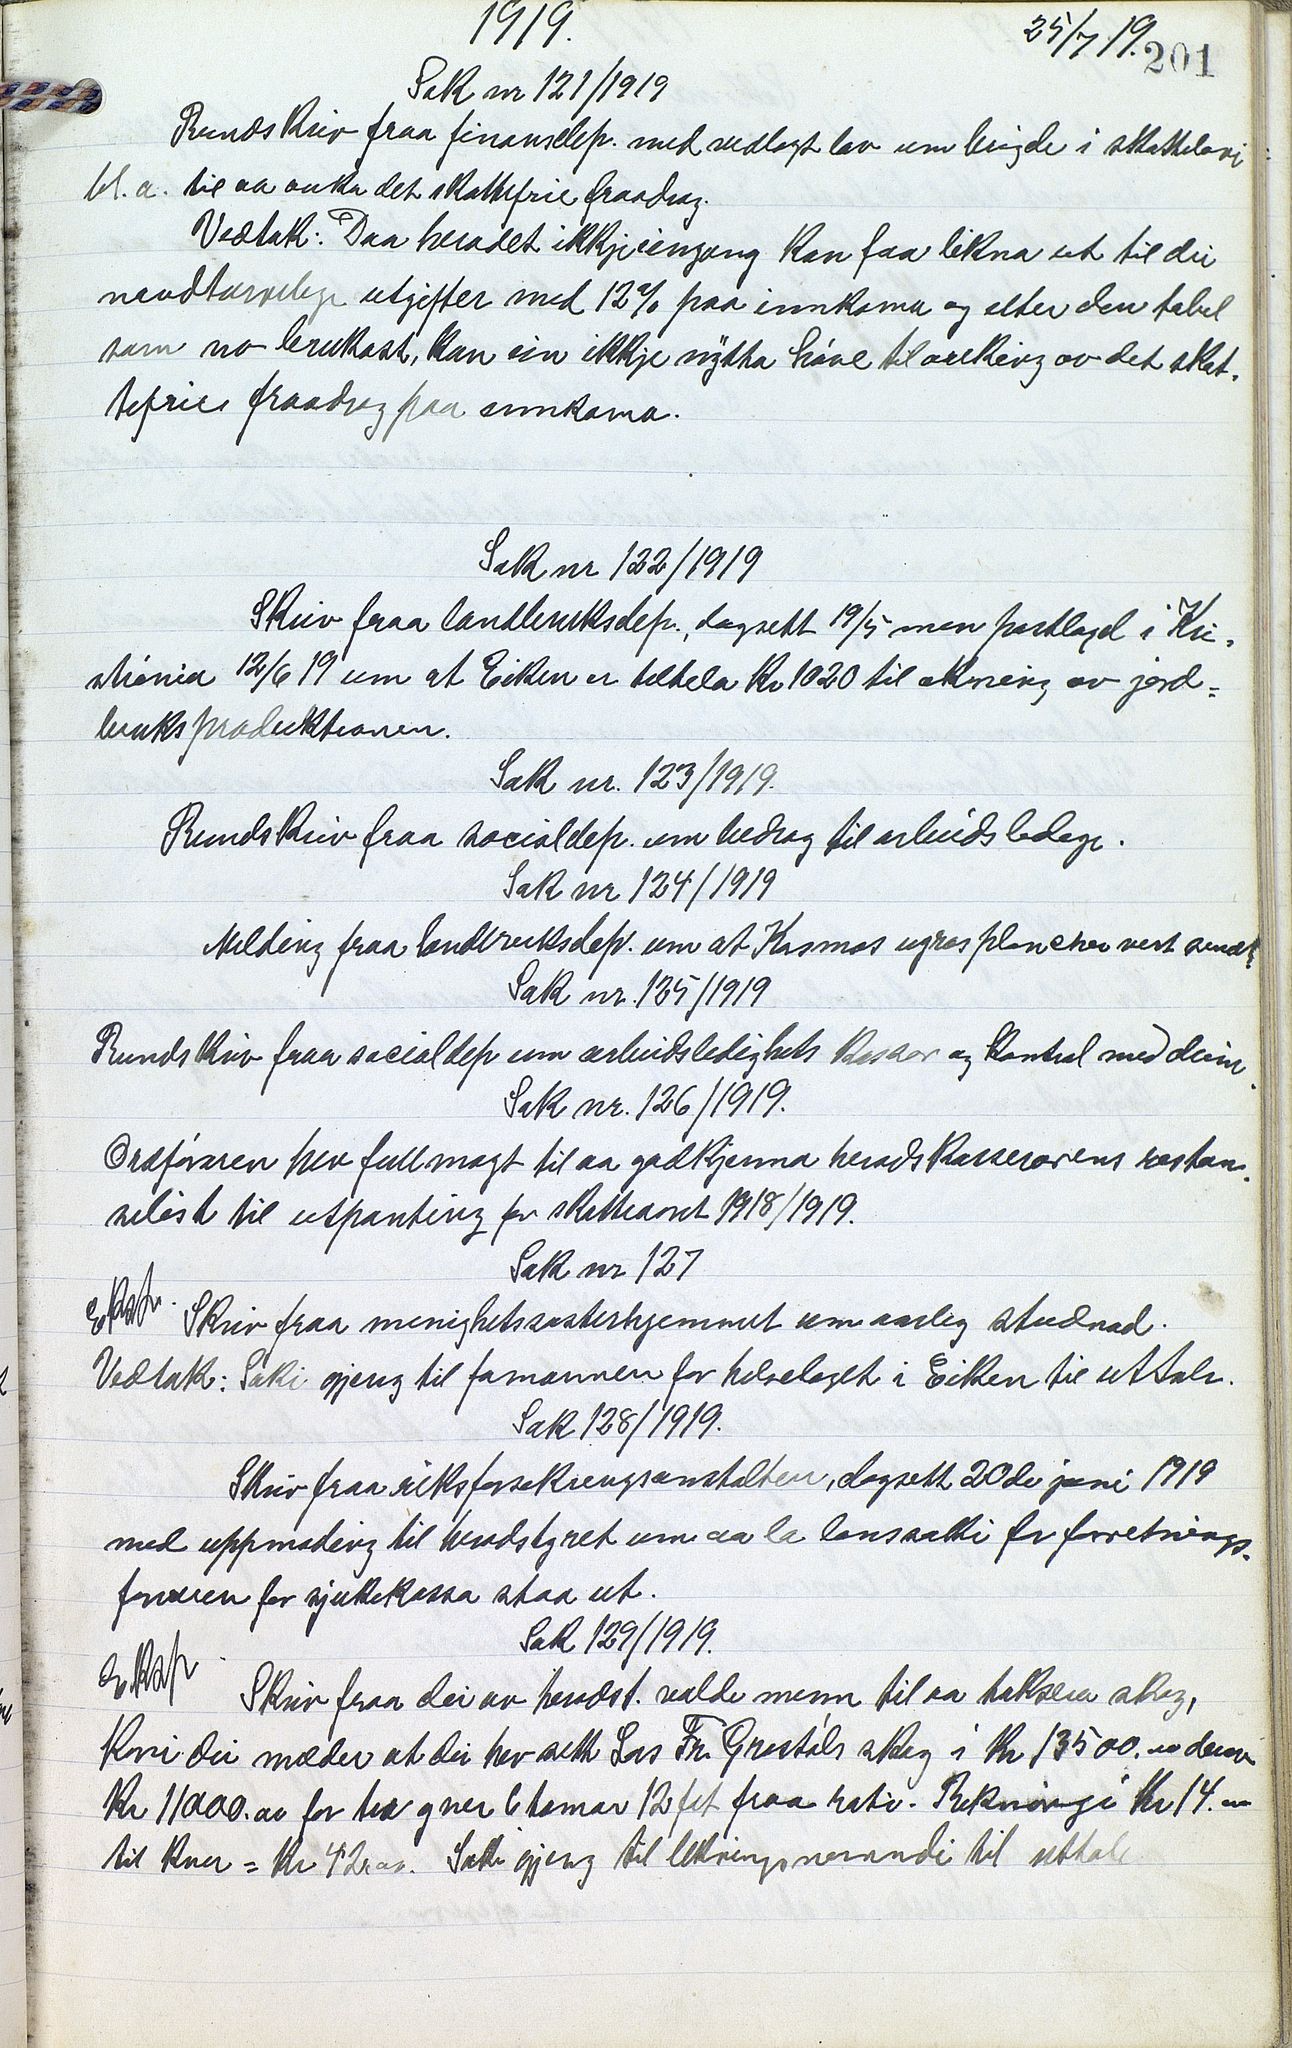 1919.
25/7 19.
201
Sak nr 121/1919
Rundskriv fraa finansdep. med vedlagt lov um brigde i skattelovi
bl. a. til aa auka det skattefrie fraadrag.
Vedtak: Daa heradet ikkjeeingong kan faa likna ut til dei
naudturvelege utgifter med 12% paa innkoma og etter den tabel
som no brukast, kan ein ikkje nytta høve til auking av det skat-
tefrie fraadrag paa innkoma.
Sak nr 122/1919
Skriv fraa landbruksdep., dagsett 19/5 men postlagd i Kri-
stiania 12/6 19 um at Eiken er tildela Kr 1020 til økning av jord=
bruksproduktionen.
Sak nr. 123/1919.
Rundskriv fraa socialdep. um bidrag til arbeidsledage.
Sak nr 124/1919
Melding fraa landbruksdep. um at Kosmos ugrasplancher vert sendt.
Sak nr. 125/1919
Rundskriv fraa socialdep um arbeidsledighets kassor og kontrol med deim.
Sak nr. 126/1919.
Ordføraren hev fullmagt til aa godkjenna heradskasserarens restan-
selist til utpanting for skatteaaret 1918/1919.
Sak nr 127
Eksp. Skriv fraa menighetssøsterhjemmet um aarleg studnad.
Vedtak: Saki gjeng til formannen for helselaget i Eiken til uttale.
Sak 128/1919.
Skriv fraa riksforsekringsanstalten, dagsett 20de juni 1919
med uppmoding til heradstyret um aa la lønssatti for forretnings-
føraren for sjukekassa staa ut.
Sak 129/1919.
Eksp Skriv fraa dei av heradst. valde menn til aa taksera skog,
kori dei melder at dei hev sett Lars Fr. Grostøls skog i Kr 13500. av denne
Kr 11000.00 for tre yver 6 tomar 12 fet fraa roti. Rekning i Kr 14.00
til kver = Kr 42.00. Saki gjeng til likningsnemndi til uttale